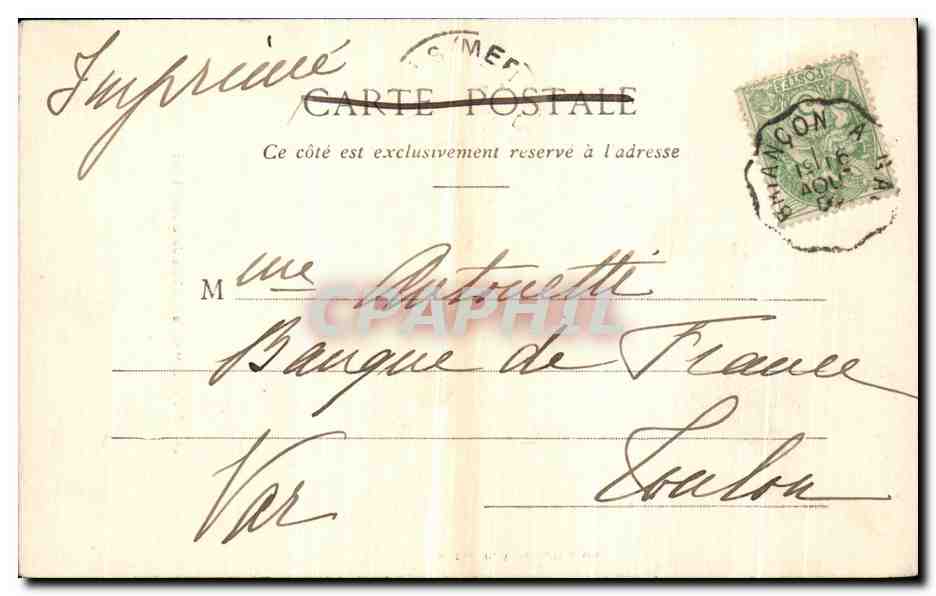 Imprimé
S/MER
CARTE POSTALE
Ce côté est exclusivement reservé à l'adresse
BRIANÇON A GA
31
AOUT
POSTES
Mme Antonetti
CPAPHIL
Banque de France
Toulon
Var